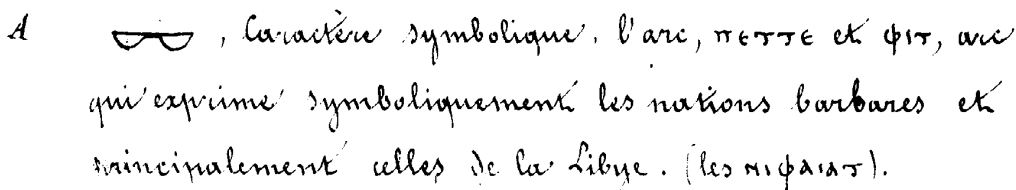 A , Caractère symbolique. l'arc, ⲡⲉⲧⲧⲉ et ⲫⲓⲧ, arc
qui exprime symboliquement les nations barbares et
principalement celles de la Libye. (les ⲛⲓⲫⲁⲓⲁⲧ).